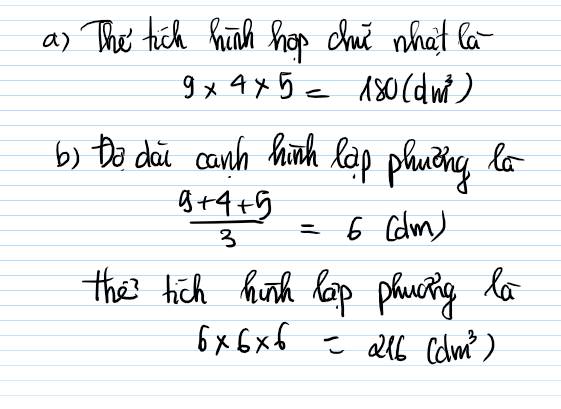 a) Thể tích hình hộp chữ nhật là
9 x 4 x 5 = 180 (dm³)
b) Độ dài cạnh hình lập phương là
9+4+5
/3 = 6 (dm)
thể tích hình lập phương là
6 x 6 x 6 = 216 (dm³)